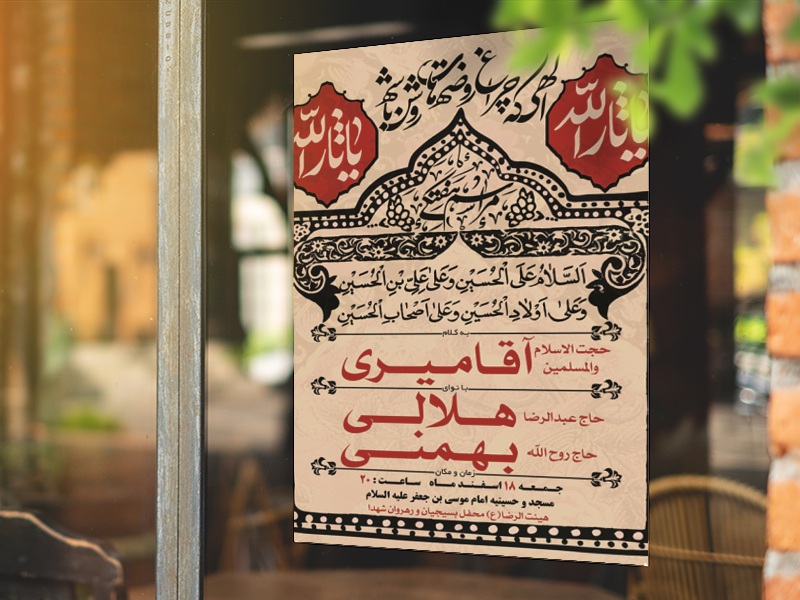 الهی که چراغ روضه‌هات روشن باشه
یا ثارالله
یا ثارالله
مراسم هفتگی
اَلسَّلامُ عَلَى الْحُسَيْنِ وَعَلى عَلِيِّ بْنِ الْحُسَيْنِ
وَعَلى اَوْلادِ الْحُسَيْنِ وَعَلى اَصْحابِ الْحُسَيْنِ
به کلام
حجت الاسلام والمسلمین
آقامیری
با نوای
حاج عبدالرضا هلالی
حاج روح الله بهمنی
زمان و مکان
جمعه ۱۸ اسفند ماه ساعت: ۲۰
مسجد و حسینیه امام موسی بن جعفر علیه السلام
هیئت الرضا(ع) محفل بسیجیان و رهروان شهدا